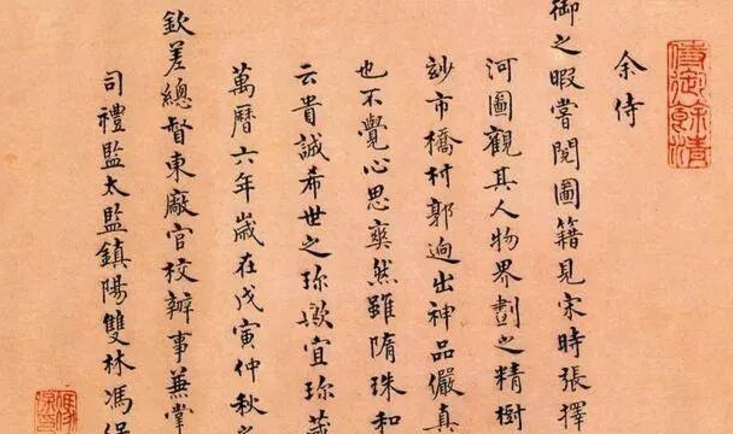 余侍
御之暇嘗閱圖籍見宋時張擇
河圖觀其人物界劃之精樹
玅市橋村郭逈出神品儼真
也不覺心思爽然雖隋珠和
云貴誠希世之珎歟宜珎藏
萬曆六年歲在戊寅仲秋之
欽差總督東廠官校辦事兼掌
司禮監太監鎮陽雙林馮保
侍御餘清